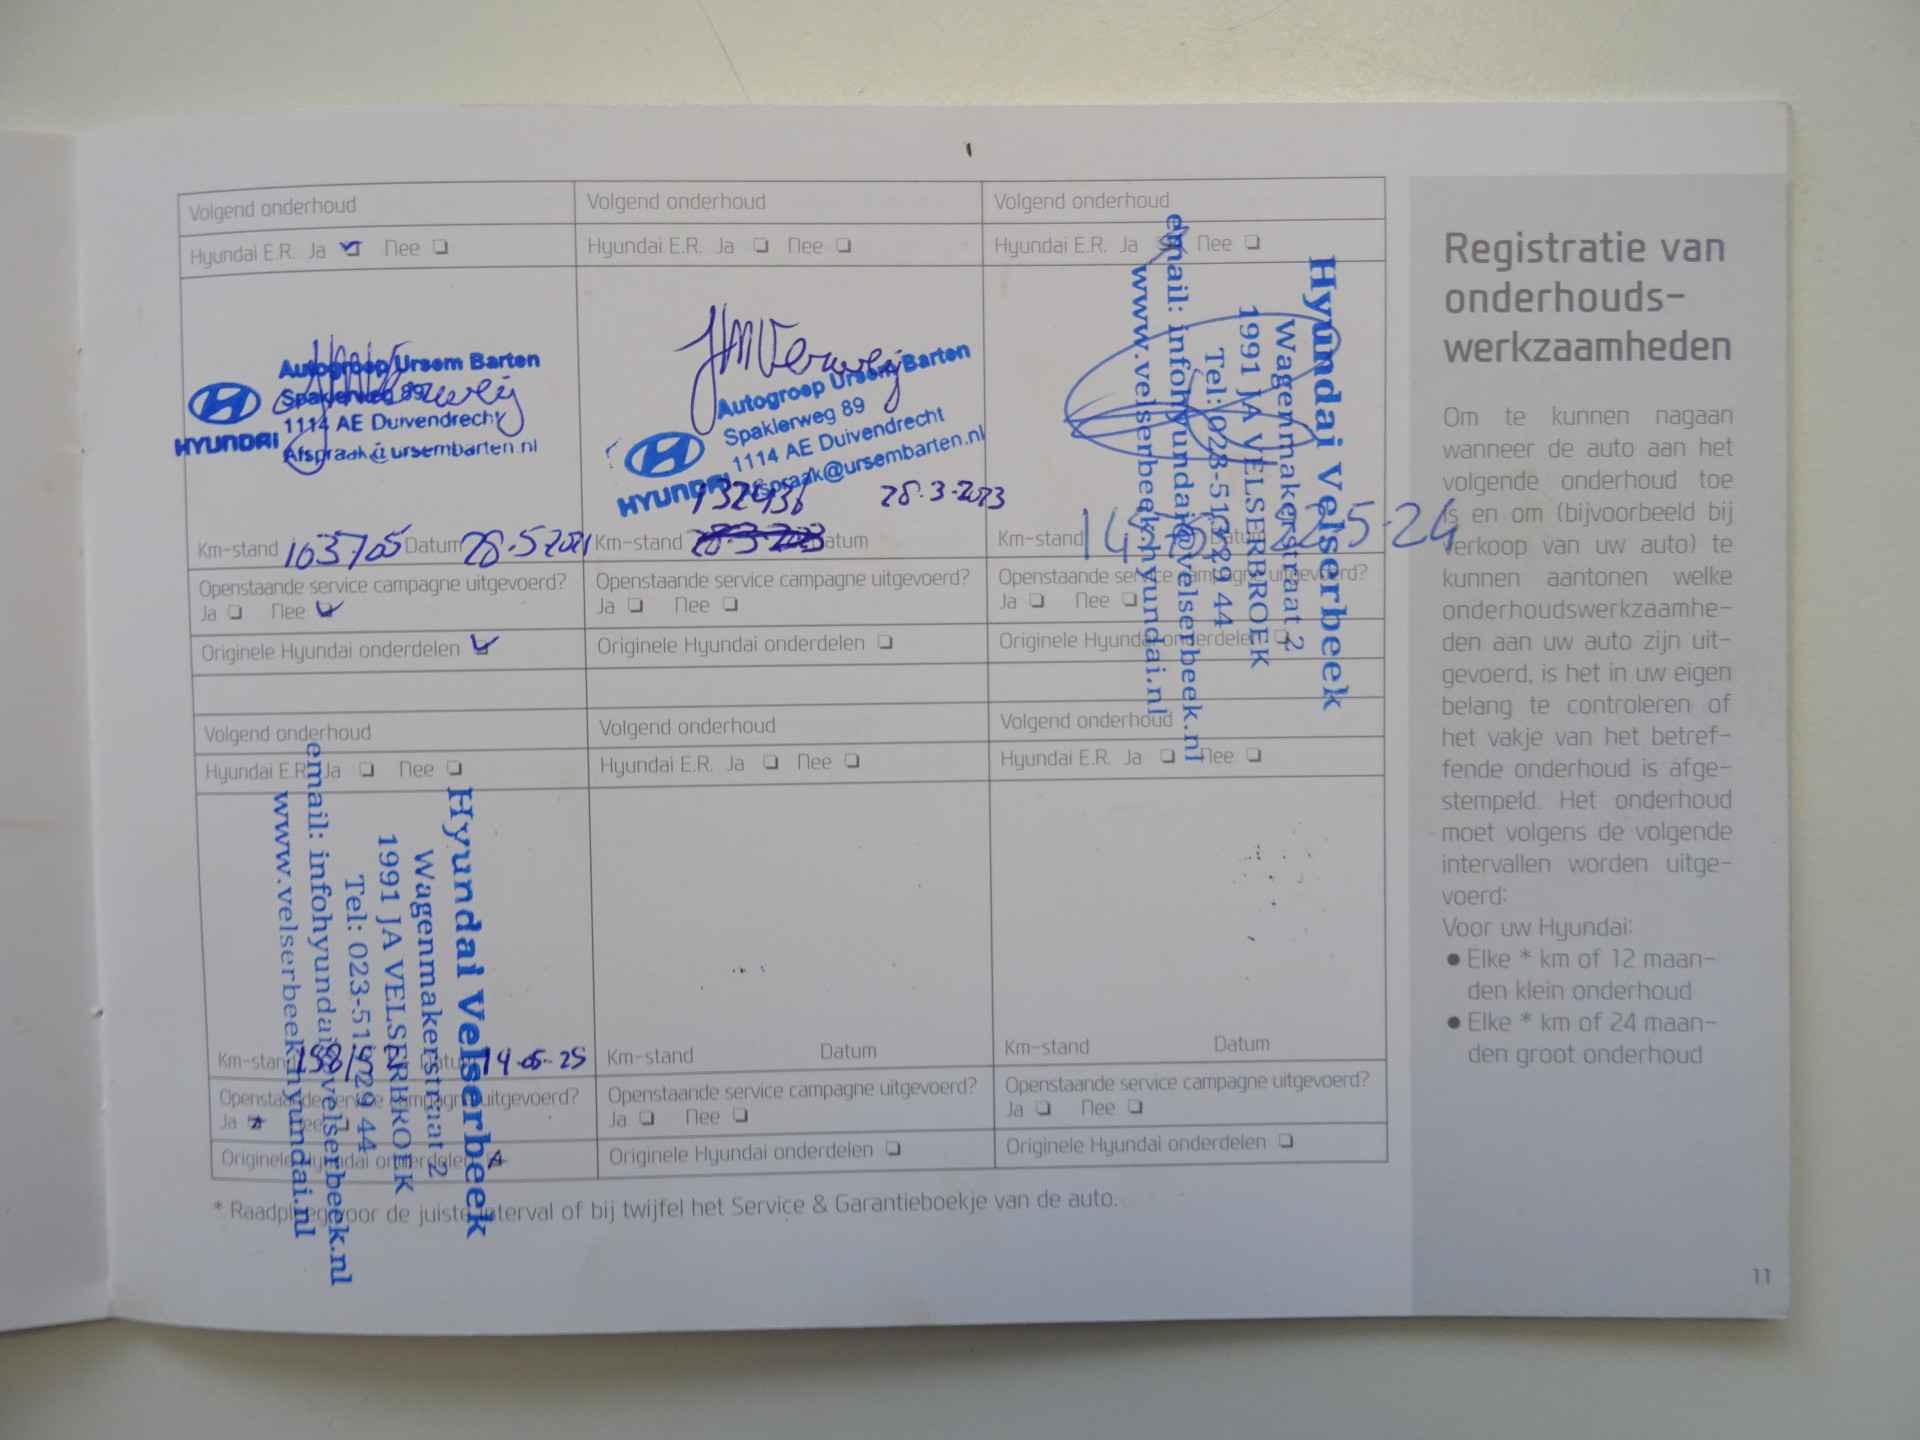 Volgend onderhoud
Hyundai E.R. Ja Nee
Autogroep Ursem Barten
Spaklerweg 89
1114 AE Duivendrecht
Afspraak@ursembarten.nl
HYUNDAI
Km-stand 103705 Datum 28-5-2021
Openstaande service campagne uitgevoerd?
Ja Nee
Originele Hyundai onderdelen
Volgend onderhoud
Hyundai E.R. Ja Nee
JHMVerweij
Autogroep Ursem Barten
Spaklerweg 89
1114 AE Duivendrecht
spraak@ursembarten.nl
HYUNDAI
132436 28-3-2023
Km-stand 28-3-2023 Datum
Openstaande service campagne uitgevoerd?
Ja Nee
Originele Hyundai onderdelen
Volgend onderhoud
Hyundai E.R. Ja Nee
Hyundai Velserbeek
Wagenmakerstraat 2
1991 JA VELSERBROEK
Tel: 023-5132944
email: infohyundai@velserbeek.nl
www.velserbeek.hyundai.nl
Km-stand Datum 5-24
Openstaande service campagne uitgevoerd?
Ja Nee
Originele Hyundai onderdelen
Volgend onderhoud
Hyundai E.R. Ja Nee
Hyundai Velserbeek
Wagenmakerstraat 2
1991 JA VELSERBROEK
Tel: 023-5132944
email: infohyundai@velserbeek.nl
www.velserbeek.hyundai.nl
Km-stand Datum 14-05-25
Openstaande service campagne uitgevoerd?
Ja Nee
Originele Hyundai onderdelen
Volgend onderhoud
Hyundai E.R. Ja Nee
Km-stand Datum
Openstaande service campagne uitgevoerd?
Ja Nee
Originele Hyundai onderdelen
Volgend onderhoud
Hyundai E.R. Ja Nee
Km-stand Datum
Openstaande service campagne uitgevoerd?
Ja Nee
Originele Hyundai onderdelen
* Raadpleeg voor de juiste interval of bij twijfel het Service & Garantieboekje van de auto.
Registratie van
onderhouds-
werkzaamheden
Om te kunnen nagaan
wanneer de auto aan het
volgende onderhoud toe
is en om (bijvoorbeeld bij
verkoop van uw auto) te
kunnen aantonen welke
onderhoudswerkzaamhe-
den aan uw auto zijn uit-
gevoerd, is het in uw eigen
belang te controleren of
het vakje van het betref-
fende onderhoud is afge-
stempeld. Het onderhoud
moet volgens de volgende
intervallen worden uitge-
voerd:
Voor uw Hyundai:
● Elke * km of 12 maan-
den klein onderhoud
● Elke * km of 24 maan-
den groot onderhoud
11